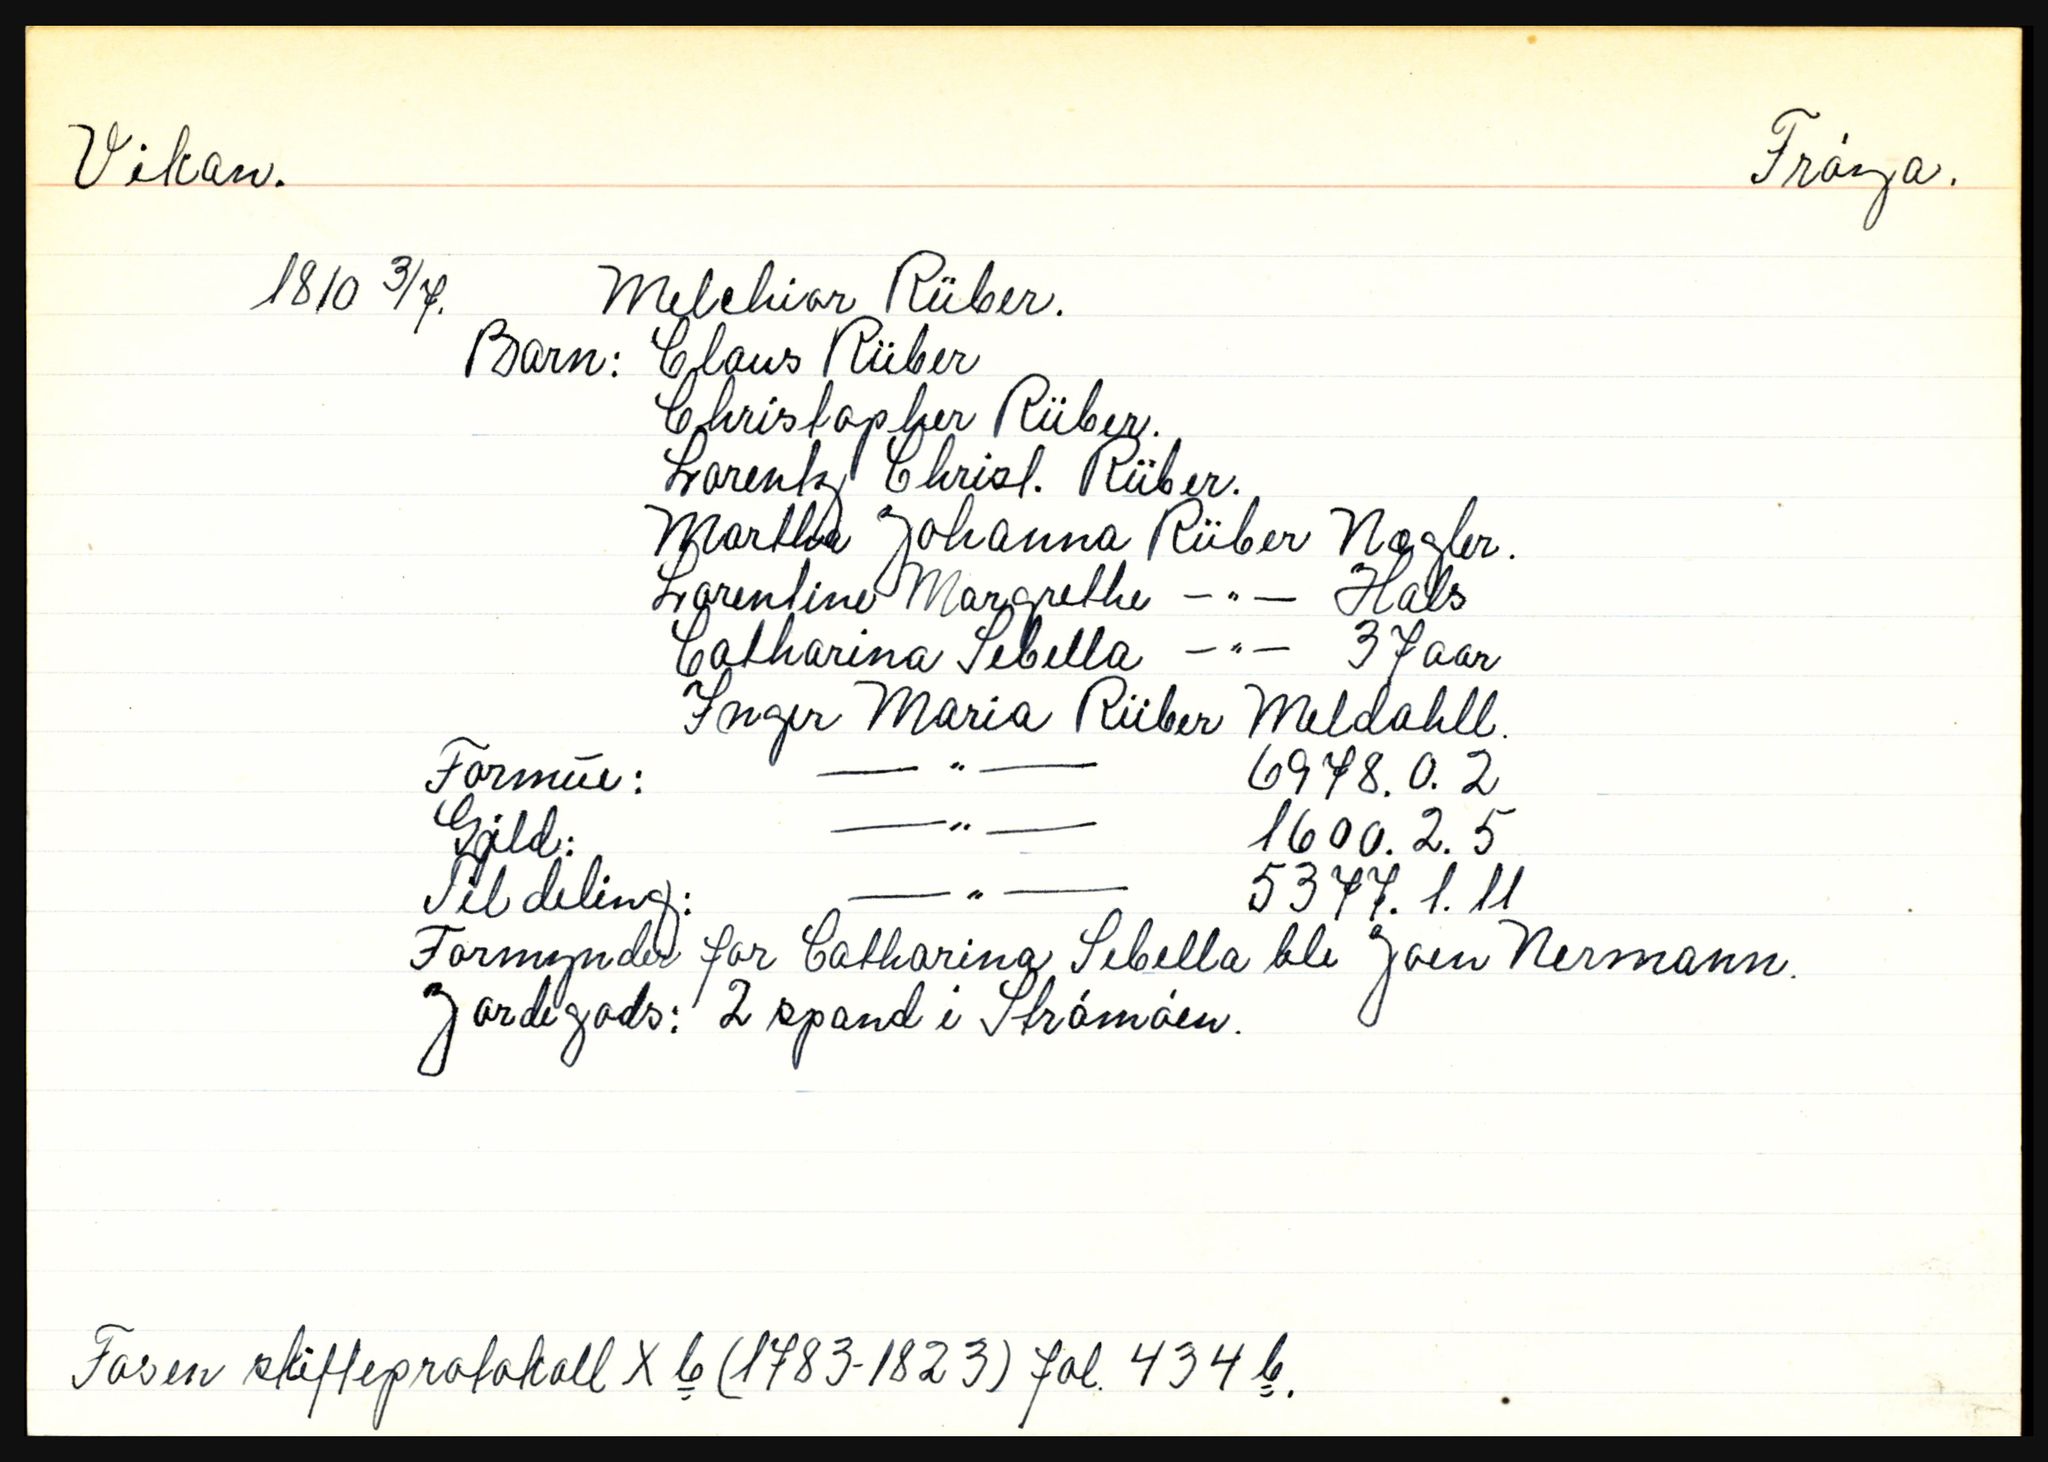 Vikan. Fröya.
1810 3/7. Melchior Rüber.
Barn: Claus Rüber
Christopher Rüber.
Lorentz Christ. Rüber.
Martha Johanna Rüber Nagler.
Lorentine Margrethe —"— Hals
Catharina Sebella —"— 37 aar
Inger Maria Rüber Meldahll.
Formue: —"— 6978.0.2
Gjæld: —"— 1600.2.5
Til deling: —"— 5377.1.11
Formynder for Catharina Sebella ble Joen Nermann.
Jordegods: 2 spand i Strömöen.
Fosen skifteprotokoll X b (1783-1823) fol. 434 b.